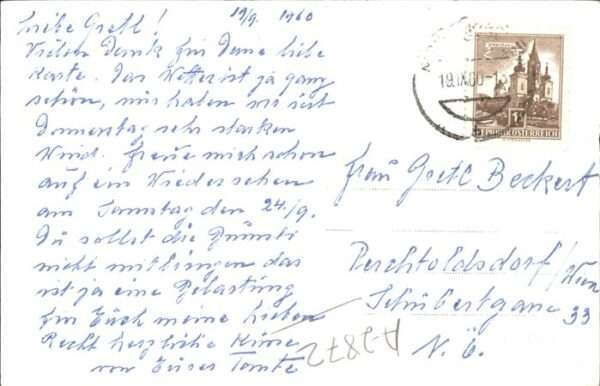 19/9. 1960
Liebe Gretl!
Vielen Dank für Deine liebe
Karte. Das Wetter ist ja ganz
schön, wir haben nur seit
Donnerstag sehr starken
Wind. Freue mich schon
auf ein Wiedersehen
am Samstag den 24./9.
Du sollst die
nicht mitbringen das
ist ja eine Belastung
für Euch meine Lieben
Recht herzliche
von Eurer Tante
19.IX.60
REPUBLIK ÖSTERREICH
Frau Gretl Beckert
Perchtoldsdorf/Wien
Schubertgasse 33
N.Ö.
A2872